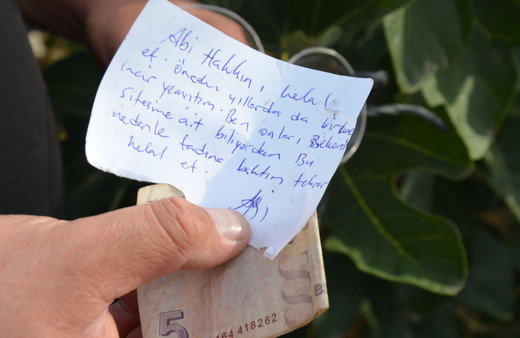 Abi Hakkını helal
et. önceki yıllarda da birkaç
incir yemiştim. Ben onları,
sitesine ait biliyordum. Bu
nedenle tadına baktım tekrar
helal et.
5
464 418262
B